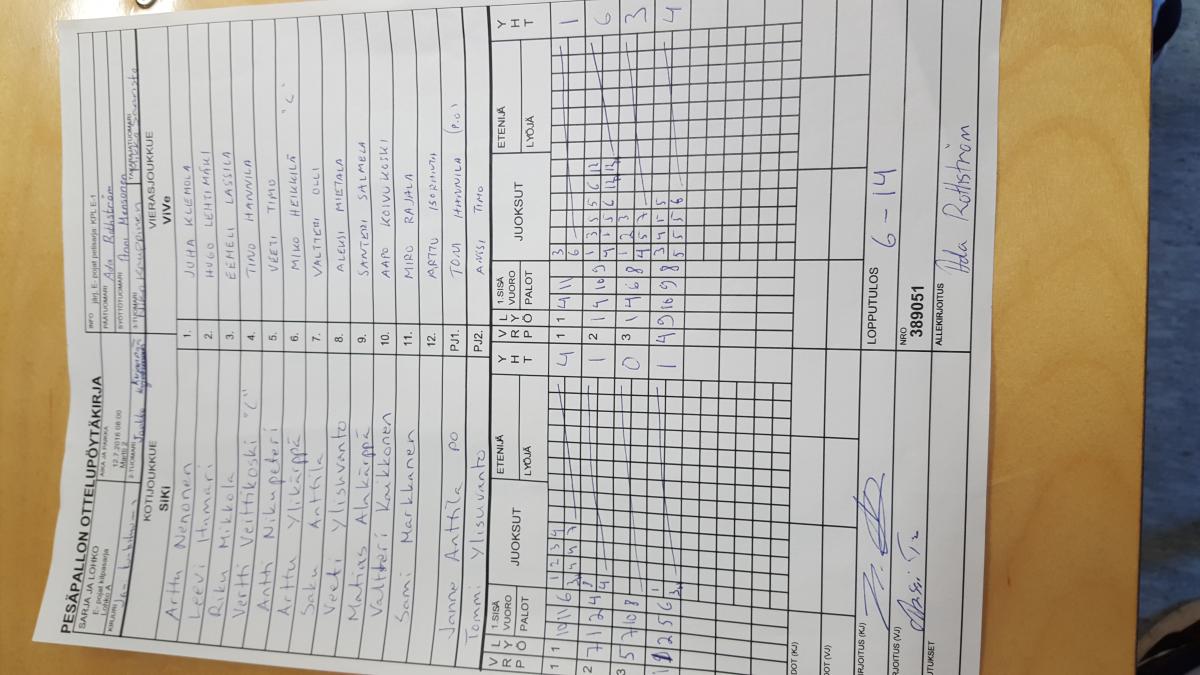 PESÄPALLON OTTELUPÖYTÄKIRJA
SARJA JA LOHKO
E- pojat kilpasarja
Lohko A
AIKA JA PAIKKA
12.7.2018 08:00
Martti 2
INFO järj. E- pojat pelisarja: KPL E-1
PÄÄTUOMARI Ada Rothström
SYÖTTÖTUOMARI Anni Mensonen
KIRJURI
2-TUOMARI
3-TUOMARI
TAKARAJATUOMARI
KOTIJOUKKUE
SiKi
VIERASJOUKKUE
ViVe
Arttu Nenonen 1. JUHA KLEMOLA
Leevi Hamari 2. HUGO LEHTIMÄKI
Riku Mikkola 3. EEMELI LASSILA
Vertti Velttikoski "C" 4. TINO HANNILA
Antti Nikupeteri 5. VEETI TIMO
Arttu Ylikärppä 6. MIKO HEIKKILÄ "C"
Saku Anttila 7. VALTTERI OLLI
Veeti Ylisuvanto 8. ALEKSI MIETALA
Matias Alakärppä 9. SANTERI SALMELA
Valtteri Kaikkonen 10. AAPO KOIVUKOSKI
Sami Markkanen 11. MIRO RAJALA
12. ARTTU
Janne Anttila PO PJ1. TONI HANNILA (P.O)
Tommi Ylisuvanto PJ2. ANSSI TIMO
V P L R Y Ö 1.SISÄ VUORO PALOT JUOKSUT ETENIJÄ LYÖJÄ Y H T
V P L R Y Ö 1.SISÄ VUORO PALOT JUOKSUT ETENIJÄ LYÖJÄ Y H T
1 1 10 11 6 1 2 3 4 4 1 1 4 11 3 6 1
2 7 1 2 4 1 2 1 4 10 9 6
3 5 7 10 8 0 3 1 4 6 8 1 2 3 4 5 7 3
2 5 6 1 1 4 9 10 9 8 3 4 5 5 5 5 5 6 4
DOT (KJ)
DOT (VJ)
RJOITUS (KJ)
LOPPUTULOS 6 - 14
RJOITUS (VJ)
NRO
389051
UTUKSET
ALLEKIRJOITUS Ada Rothström